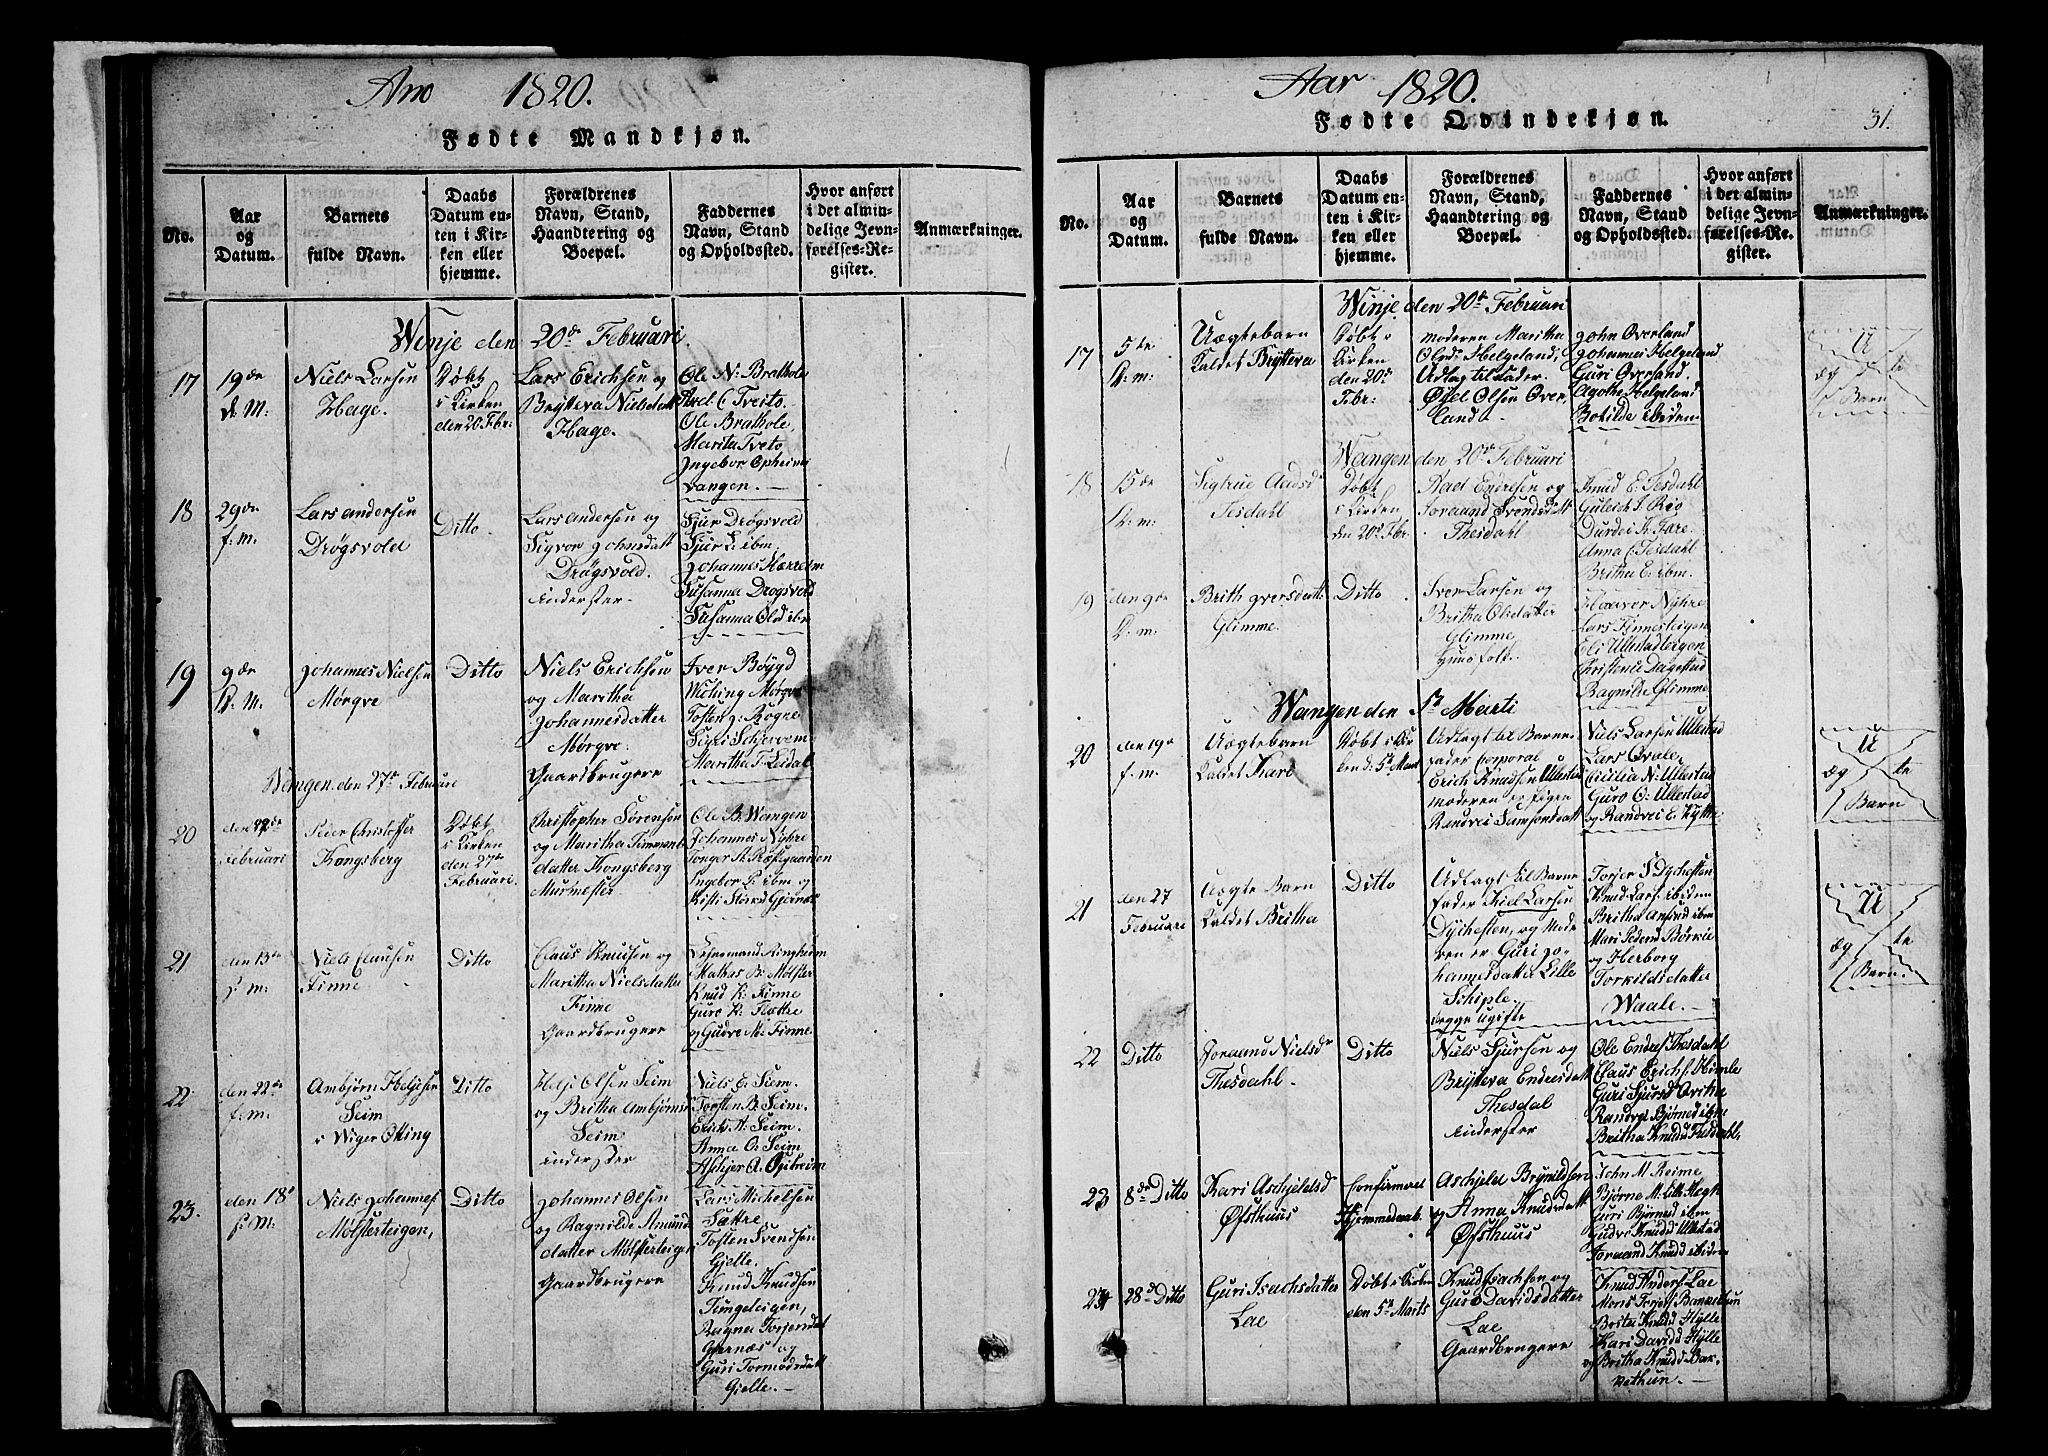 Ano 1820.
Fødte Mandkjøn.
No.
Aar
og
Datum.
Barnets
fulde Navn.
Daabs
Datum en-
ten i Kir-
ken eller
hjemme.
Forældrenes
Navn, Stand,
Haandtering og
Boepæl.
Faddernes
Navn, Stand
og Opholdssted.
Hvor anført
i det almin-
delige Jevn-
førelses-Re-
gister.
Anmærkninger.
Winje den 20de Februari.
17
19de
d. M.
Niels Larsen
Hage.
Døbt
i Kirken
den 20 Fbr:
Lars Erichsen og
Brytteva Nielsdatt
Hage.
Ole N: Brathole
Axel C. Tveito.
Ole Brathole,
Marita Tveto
Ingebor Opheim
Vangen.
18
29de
f. M.
Lars Andersen
Drøgsvold
Ditto
Lars Andersen og
Sigvor Johnsdatt
Drøgsvold.
Inderster.
Sjur Drøgsvold
Sjur L: ibm
Johannes Herreim
Susanna Drøgsvold
Susanna Olsd ibm
19
9de
d. M.
Johannes Nielsen
Mørqve
Ditto
Niels Erichsen
og Maritha
Johannesdatter
Mørqve.
Gaardbrugere
Iver Bøygd
Wiching Mørqve
Tosten J: Rogne
Sigri Schjervem
Maritha T. Leidal
Wangen den 27de Februari
20
den 22de
Februari
Peter Christoffer
Kongsberg
Døbt
i Kirken
den 27de
Februari.
Christopher Sørensen
og Maritha Timmand
datter Kongsberg
Murmester
Ole B. Wangen
Johannes Nyhre
Ingebor L: ibm og
21
den 13de
f. M.
Niels Clausen
Finne
Ditto
Claus Knudsen og
Maritha Nielsdatter
Finne
Gaardbrugere
Mathis B: Mølster
Knud K: Finne
Guro K: Flattre
og Gudve N: Finne
22
den 22de
f. M.
Ambjørn Helgesen
Seim
Ditto
Helje Olsen Seim
og Britha Ambjørnsd
Seim
Inderster
Niels E: Siem.
Torsten B: Seim.
Erich A: Seim.
Anna O: Seim
23.
den 18de
f. M.
Niels Johannes
Mølsterteigen,
Ditto
Johannes Olsen
og Ragnilde Amund
datter Mølsterteigen
Gaardbrugere
Lars Michelsen
Sættre
Tosten Svendsen
Gjelle.
Knud Knudsen
Ragna Torjersdat
Giernæs og
Guri Tormodsdatt
Gjelle.
Aar 1820.
Fødte Qvindekjøn.
31.
No.
Aar
og
Datum.
Barnets
fulde Navn.
Daabs
Datum en-
ten i Kir-
ken eller
hjemme.
Forældrenes
Navn, Stand,
Haandtering og
Boepæl.
Faddernes
Navn, Stand
og Opholdssted.
Hvor anført
i det almin-
delige Jevn-
førelses-Re-
gister.
Anmærkninger.
Winje den 20de Februari
17
5te
d. m:
Uægtebarn
Kaldet Brytteva
Døbt i
Kirken
den 20de
Febr:
moderen Maritha
Olsd: Helgeland,
Udlagt til Fader.
Olsen Over
land
John Overland
Johannes Helgeland
Guri Overland.
Agothe Helgeland
Botilde ibiden
U
æg te
Barn
Wangen den 20de Februari
18
15de
d. m:
Sigtrue Aadsd
Tesdahl
Døbt
i Kirken
den 20de Fbr
Aad Eivelsen og
Joraand Svendsdatt
Thesdahl
Knud E. Tesdahl
Guleich J. Røo
Durdei K. Fære
Anna E. Tesdahl
Britha E. ibm.
19
den 9de
d. m:
Brith Iversdatt
Glimme.
Ditto
Iver Larsen og
Britha Olsdatter
Glimme
Huusfolk.
Haaver Nyhre
Lars Finnesteigen
Eli Ullestadlegen
Christense Dagestad
Ragnilde Glimme
Wangen den 5te Marti
20
den 19de
f. m.
Uægtebarn
Kaldet Kari
Døbt i Kir
ken d: 5te Mart
Udlagt til Barne
fader Corporal
Erich Knudsen Ullestad
moderen er Pigen
Randvei Samsondatt
Niels Larsen Ullestad
Lars Qvale,
Cicilia N: Ullestad
Guro O: Ullestad
og Randvei E. Kytte
U
æg te
Barn
21
den 27
Februare
Uægte Barn
Kaldet Britha
Ditto
Udlagt til Barne
fader Kiel Larsen
Dychesten, og Mode
ren er Guri Jo-
hannesdatter Lille
Schiple,
begge ugifte
Torjer S Dychesten
Knud Lars: ibiden
Britha Amund ibm
Mari Peders Børkie
og Herborg
Torkildsdatter
Waale.
U
æg te
Barn.
22
Ditto
Joraand Nielsdr
Thesdahl.
Ditto
Niels Sjursen og
Brytteva Endresdatt
Thesdal
Inderster
Ole Endres Thesdahl
Claus Erichs: Himle
Guri Sjursd Qvitne
Randvei Bjørnsd ibm
Britha Knudsd Tesdahl.
23
8de Ditto
Kari Aschjelsd
Øfsthuus
Confirmeret
Hjemmedaab.
Aschjeld Brynildsen
og Anna Knudsdatt
Øfsthuus
John M. Reime
Bjørne M. Lille Hegh
Guri Bjørnsd ibm
Gudve Knudsd Ullestad
Joraand Knudsd ibiden
24
28de Ditto
Guri Isachsdatter
Lae
Døbt i Kirken
den 5te Marts
Knud Isachsen og
Guro Davidsdatter
Lae
Gaardbrugere
Knud Anders: Lae
Mons Torjers: Bannethun
Brita Knudsd Hylle
Kari Davidsd Hylle
og Britha Knudsd Bar-
nethun.